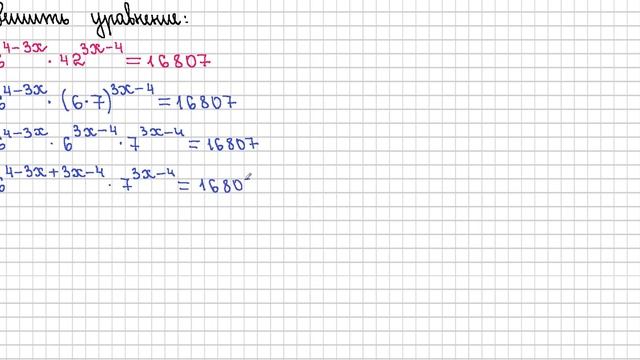 решить уравнение:
6^{4-3x} · 42^{3x-4} = 16807
6^{4-3x} · (6·7)^{3x-4} = 16807
6^{4-3x} · 6^{3x-4} · 7^{3x-4} = 16807
6^{4-3x+3x-4} · 7^{3x-4} = 1680